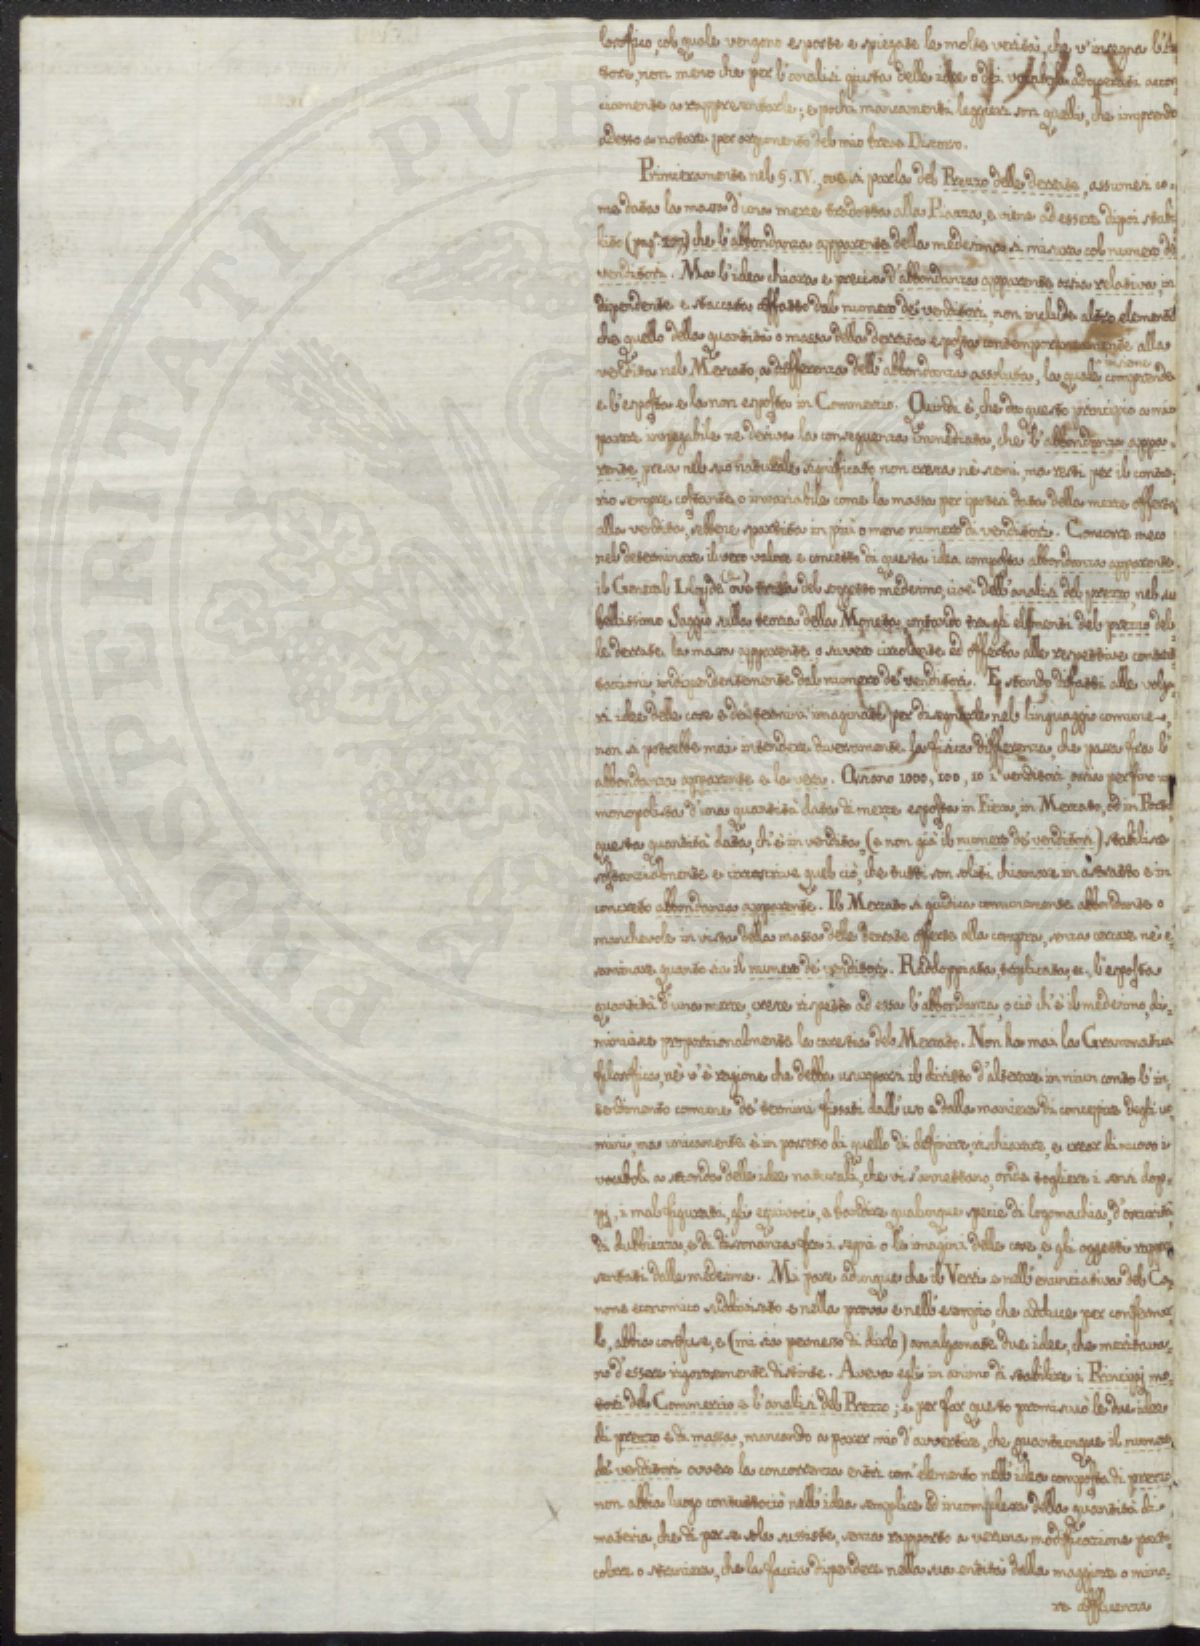 losofico, col quale vengono esposte e spiegate le molte verità, che v'insegna l'Au
tore, non meno che per l'analisi giusta delle idee o dei vocaboli adoperati accon
ciamente a rappresentarle; e pochi mancamenti leggieri son quelli, che imprendo
adesso a notare per argomento del mio breve Discorso.
Primieramente nel §. IV., ove si parla del Prezzo delle derrate, assumesi co-
me data la massa d'una merce tradotta alla Piazza, e viene ad essere dipoi stabi
lito (pag. ) che l'abbondanza apparente della medesima si misura col numero de'
venditori. Ma l'idea chiara e precisa d'abbondanza apparente ossia relativa, in
dipendente e staccata affatto dal numero de' venditori, non include altro elemento
che quello della quantità o massa della derrata esposta contemporaneamente alla
vendita nel Mercato, a differenza dell'abbondanza assoluta, la quale comprende insieme
e l'esposta e la non esposta in Commercio. Quindi è, che da questo principio a mio
parere innegabile ne deriva la conseguenza immediata, che l'abbondanza appa-
rente presa nel suo naturale significato non cresca nè scemi, ma resti per il contra
rio sempre costante o invariabile come la massa per ipotesi data della merce offerta
alla vendita, sebbene spartita in più o meno numero di venditori. Concorre meco
nel determinare il vero valore e concetto di questa idea composta abbondanza apparente
il General Lloyde ove tratta del soggetto medesimo, cioè dell'analisi del prezzo, nel su
bellissimo Saggio sulla teoria della Moneta, contando tra gli elementi del prezzo del
le derrate la massa apparente o sivvero circolante ed offerta alle respettive contrat
tazioni, indipendentemente dal numero de' venditori. E stando difatti alle volga
ri idee delle cose e dei termini imaginati per disegnarle nel linguaggio comune,
non si potrebbe mai intendere diversamente la fisica differenza, che passa fra l'
abbondanza apparente e la vera. Q 1000, 100, 10 i venditori, ossia perfino un
monopolista d'una quantità data di merce esposta in Fiera, in Mercato, od in Porto,
questa quantità data, ch'è in vendita, (e non già il numero de' venditori) stabilisce
sostanzialmente e circoscrive quel ciò, che tutti son soliti chiamare in astratto e in
concreto abbondanza apparente. Il Mercato si giudica comunemente abbondante o
manchevole in vista della massa delle derrate offerte alla compra, senza cercare nè e
saminare quanto sia il numero de' venditori. Raddoppiata, triplicata, ec. l'esposta
quantità d'una merce, cresce rispetto ad essa l'abbondanza, o ciò ch'è il medesimo, di-
minuisce proporzionalmente la carestia del Mercato. Non ha mai la Grammatica
filosofica, nè v'è ragione che debba usurparsi il diritto d'alterare in niun conto l'in
tendimento comune de' termini fissati dall'uso e dalla maniera di concepire degli uo
mini, ma unicamente è in possesso di quello di definire, rischiarare, e crear di nuovo i
vocaboli a seconda delle idee naturali, che vi s'annettano, onde togliere i sensi dop-
pj, i mal figurati, gli equivoci, e bandire qualunque specie di logomachia, d'oscurità,
di dubbiezza, e di dissonanza fra i segni o le imagini delle cose, e gli oggetti rappre
sentati dalle medesime. Mi pare adunque che il Verri e nell'enunciativa del Ca-
none economico suddivisato e nella prova e nell'esempio, che adduce per confermar
lo, abbia confuse, e (mi sia permesso di dirlo) amalgamate due idee, che meritava-
no d'essere rigorosamente distinte. Aveva egli in animo di stabilire i Principj mo-
tori del Commercio e l'analisi del Prezzo; e per far questo promiscuò le due idee
di prezzo e di massa, mancando a parer mio d'avvertire, che quantunque il numero
de' venditori ovvero la concorrenza entri com'elemento nell'idea composta di prezzo,
non abbia luogo contuttociò nell'idea semplice ed incomplessa della quantità di
materia, che di per se sola sussiste, senza rapporto a veruna modificazione parti-
colare o straniera, che la faccia dipendere nella sua entità dalla maggiore o mino-
re affluenza